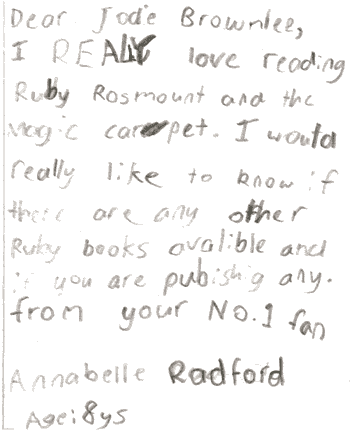 Dear Jodie Brownlee,
I REALLY love reading
Ruby Rosmount and the
Magic carpet. I would
really like to know if
there are any other
Ruby books avalible and
if you are pubishig any.
from your No.1 fan
Annabelle Radford
Age: 8ys